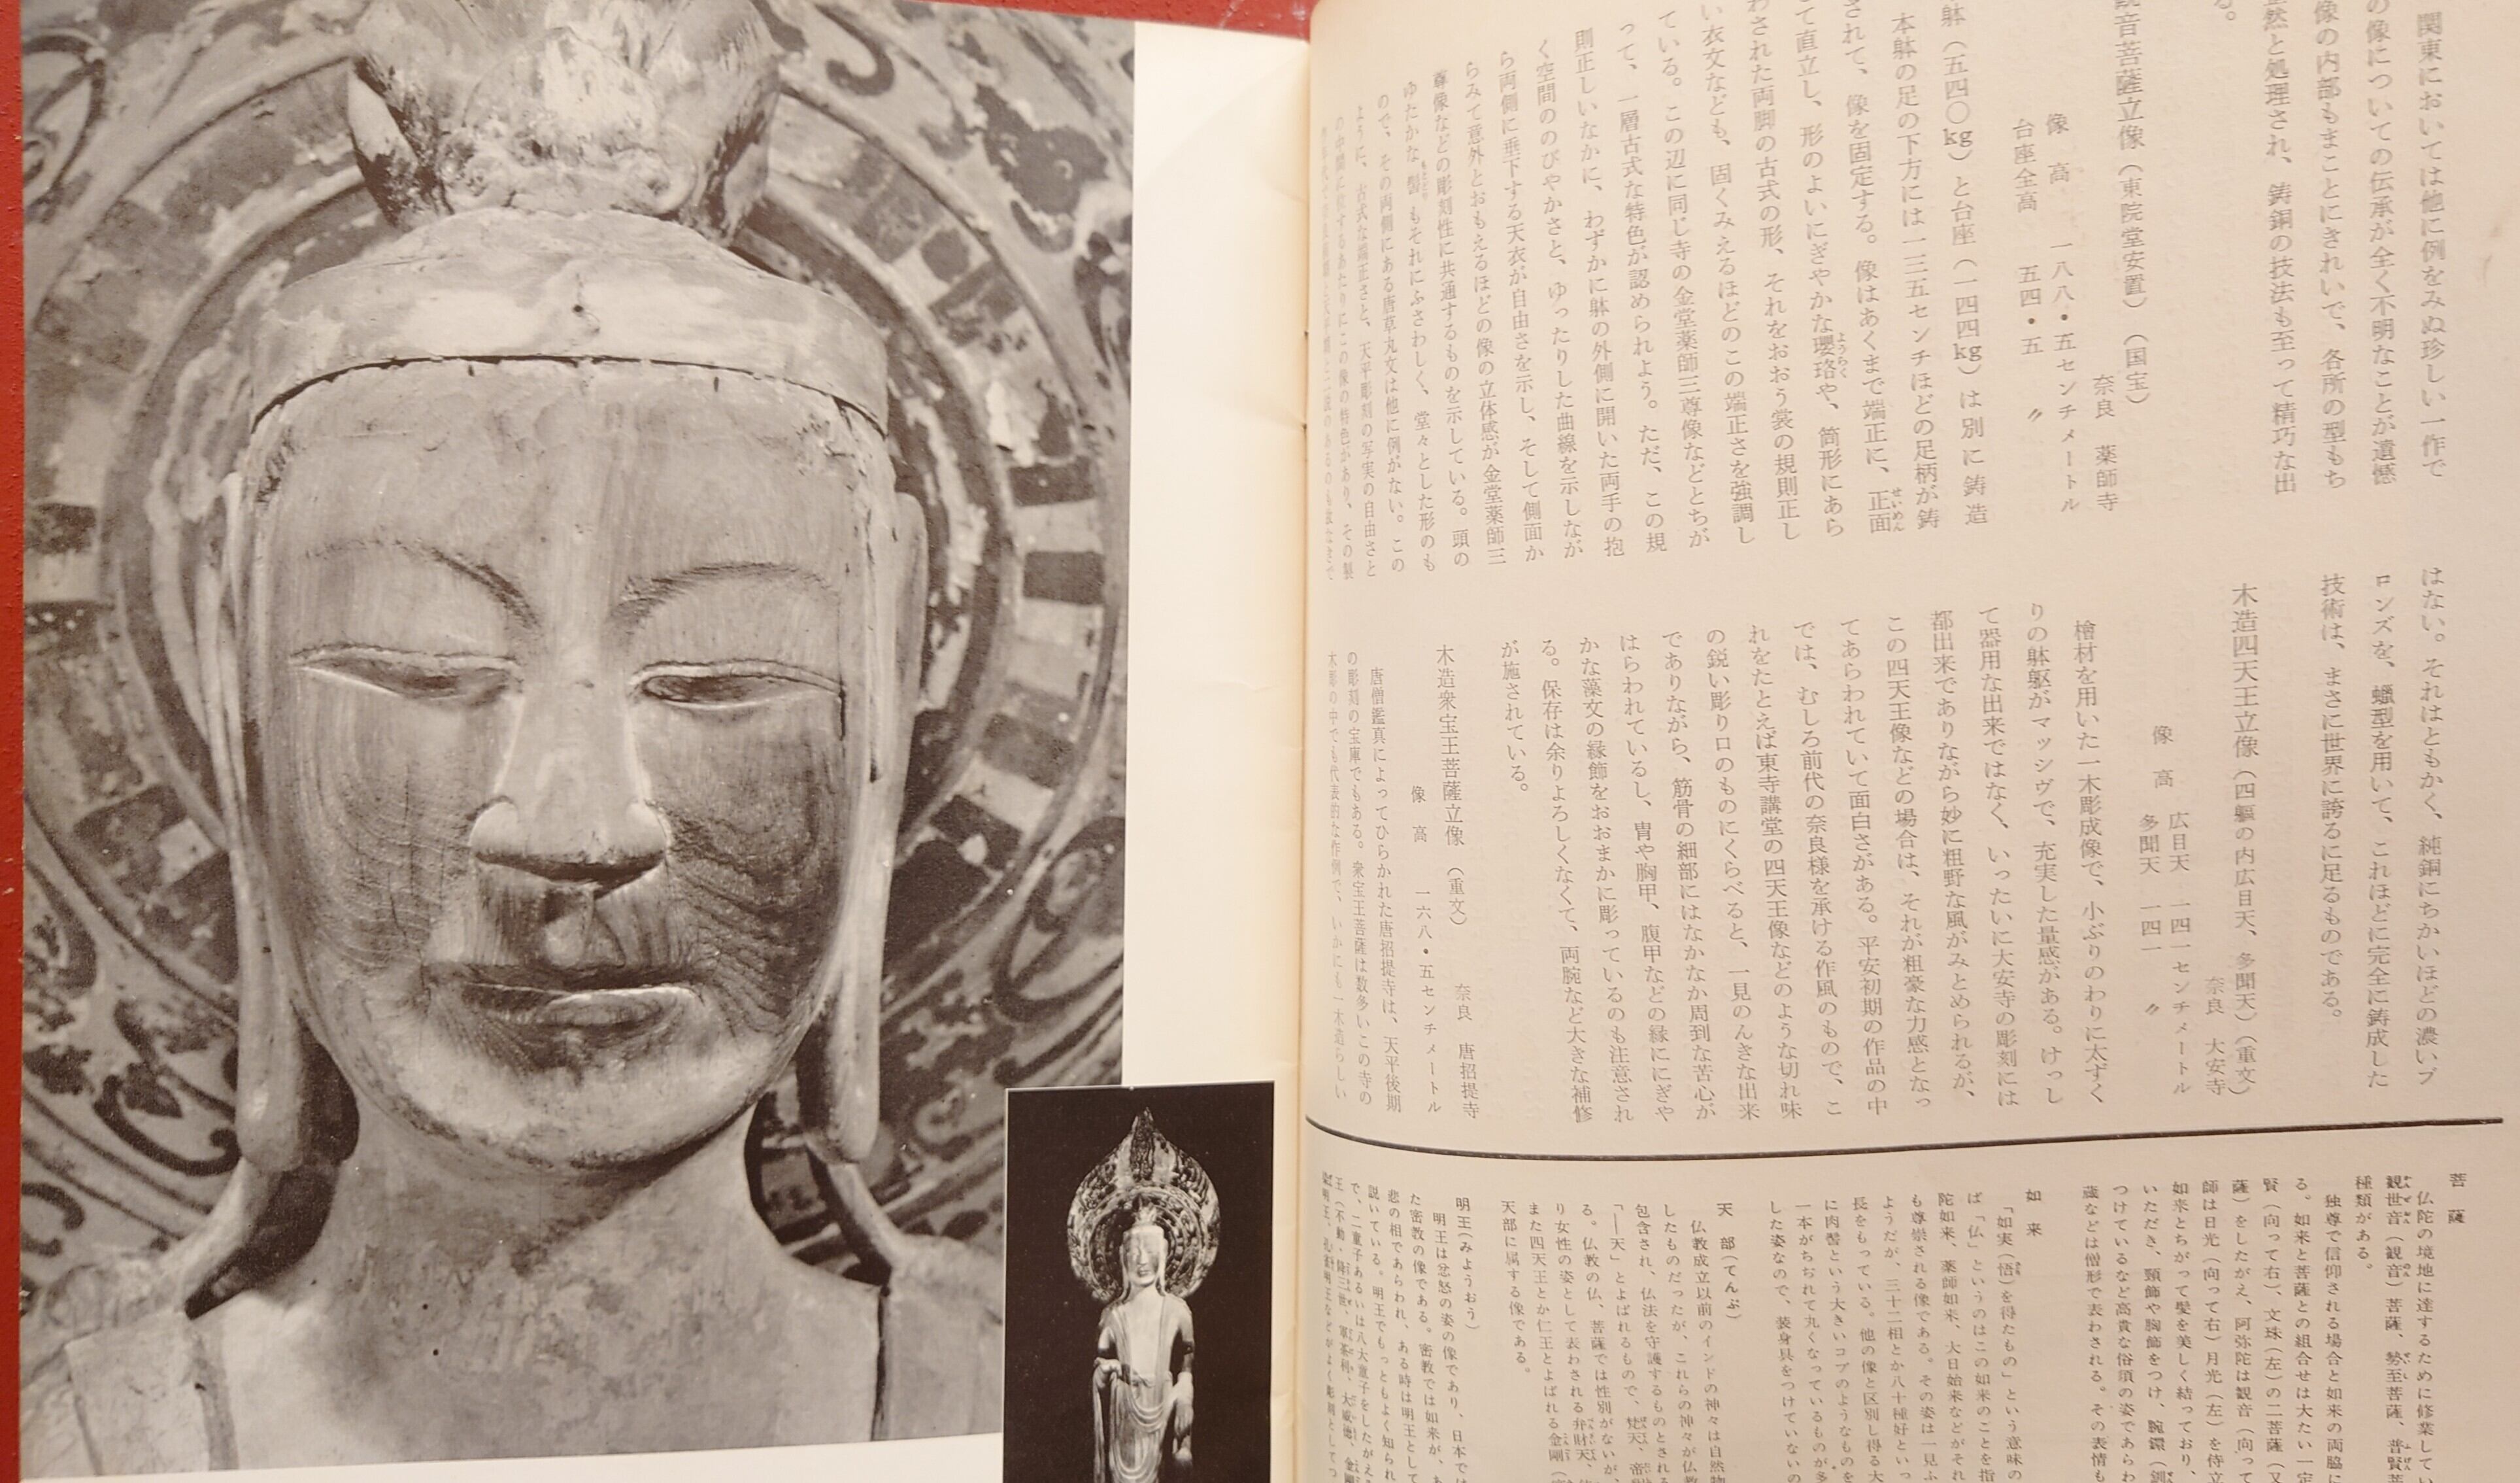 関東においては他に例をみぬ珍しい一作で
の像についての伝承が全く不明なことが遺憾
像の内部もまことにきれいで、各所の型もち
然と処理され、鋳銅の技法も至って精巧な出
る。
観音菩薩立像（東院堂安置）（国宝）
奈良　薬師寺
像　高　一八八・五センチメートル
台座全高　五四・五　〃
躰（五四〇kg）と台座（一四四kg）は別に鋳造
本躰の足の下方には一三五センチほどの足柄が鋳
されて、像を固定する。像はあくまで端正に、正面
て直立し、形のよいにぎやかな瓔珞や、筒形にあら
わされた両脚の古式の形、それをおおう裳の規則正し
い衣文なども、固くみえるほどのこの端正さを強調し
ている。この辺に同じ寺の金堂薬師三尊像などとちが
って、一層古式な特色が認められよう。ただ、この規
則正しいなかに、わずかに躰の外側に開いた両手の抱
く空間ののびやかさと、ゆったりした曲線を示しなが
ら両側に垂下する天衣が自由さを示し、そして側面か
らみて意外とおもえるほどの像の立体感が金堂薬師三
尊像などの彫刻性に共通するものを示している。頭の
ゆたかな髻もそれにふさわしく、堂々とした形のも
ので、その両側にある唐草丸文は他に例がない。この
ように、古式な端正さと、天平彫刻の写実の自由さと
の中間に位するあたりにこの像の特色があり、その製
はない。それはともかく、純銅にちかいほどの濃いブ
ロンズを、蠟型を用いて、これほどに完全に鋳成した
技術は、まさに世界に誇るに足るものである。
木造四天王立像（四軀の内広目天、多聞天）（重文）
奈良　大安寺
像　高　広目天　一四一センチメートル
多聞天　一四一　〃
檜材を用いた一木彫成像で、小ぶりのわりに太ずく
りの躰軀がマッシヴで、充実した量感がある。けっし
て器用な出来ではなく、いったいに大安寺の彫刻には
都出来でありながら妙に粗野な風がみとめられるが、
この四天王像などの場合は、それが粗豪な力感となっ
てあらわれていて面白さがある。平安初期の作品の中
では、むしろ前代の奈良様を承ける作風のもので、こ
れをたとえば東寺講堂の四天王像などのような切れ味
の鋭い彫り口のものにくらべると、一見のんきな出来
でありながら、筋骨の細部にはなかなか周到な苦心が
はらわれているし、冑や胸甲、腹甲などの縁ににぎや
かな藻文の縁飾をおおまかに彫っているのも注意され
る。保存は余りよろしくなくて、両腕など大きな補修
が施されている。
木造衆宝王菩薩立像　（重文）
奈良　唐招提寺
像　高　一六八・五センチメートル
唐僧鑑真によってひらかれた唐招提寺は、天平後期
の彫刻の宝庫でもある。衆宝王菩薩は数多いこの寺の
木彫の中でも代表的な作例で、いかにも一木造らしい
菩　薩
仏陀の境地に達するために修業してい
観世音（観音）菩薩、勢至菩薩、普賢菩
種類がある。
独尊で信仰される場合と如来の両脇
る。如来と菩薩との組合せは大たい一定
賢（向って右）、文珠（左）の二菩薩（又
薩）をしたがえ、阿弥陀は観音（向って
師は日光（向って右）月光（左）を侍立
如来とちがって髪を美しく結っており、
いただき、頸飾や胸飾をつけ、腕鐶（釧
つけているなど高貴な俗須の姿であらわ
蔵などは僧形で表わされる。その表情も
如　来
「如実（悟）を得たもの」という意味の
ば「仏」というのはこの如来のことを指
陀如来、薬師如来、大日始来などがそれ
も尊崇される像である。その姿は一見ふ
ようだが、三十二相とか八十種好といっ
長をもっている。他の像と区別し得る大
に肉髻という大きいコブのようなものを
一本がちぢれて丸くなっているものが多
した姿なので、装身具をつけていないの
天　部（てんぶ）
仏教成立以前のインドの神々は自然物
したものだったが、これらの神々が仏教
包含され、仏法を守護するものとされ
「―天」とよばれるもので、梵天、帝
る。仏教の仏、菩薩では性別がないが、
り女性の姿として表わされる弁財天、
また四天王とか仁王とよばれる金剛（
天部に属する像である。
明王（みようおう）
明王は忿怒の姿の像であり、日本では
た密教の像である。密教では如来が、あ
悲の相であらわれ、ある時は明王として
説いている。明王でもっともよく知られ
で、二童子あるいは八大童子をしたがえ
王（不動・降三世、軍荼利、大威徳、金剛